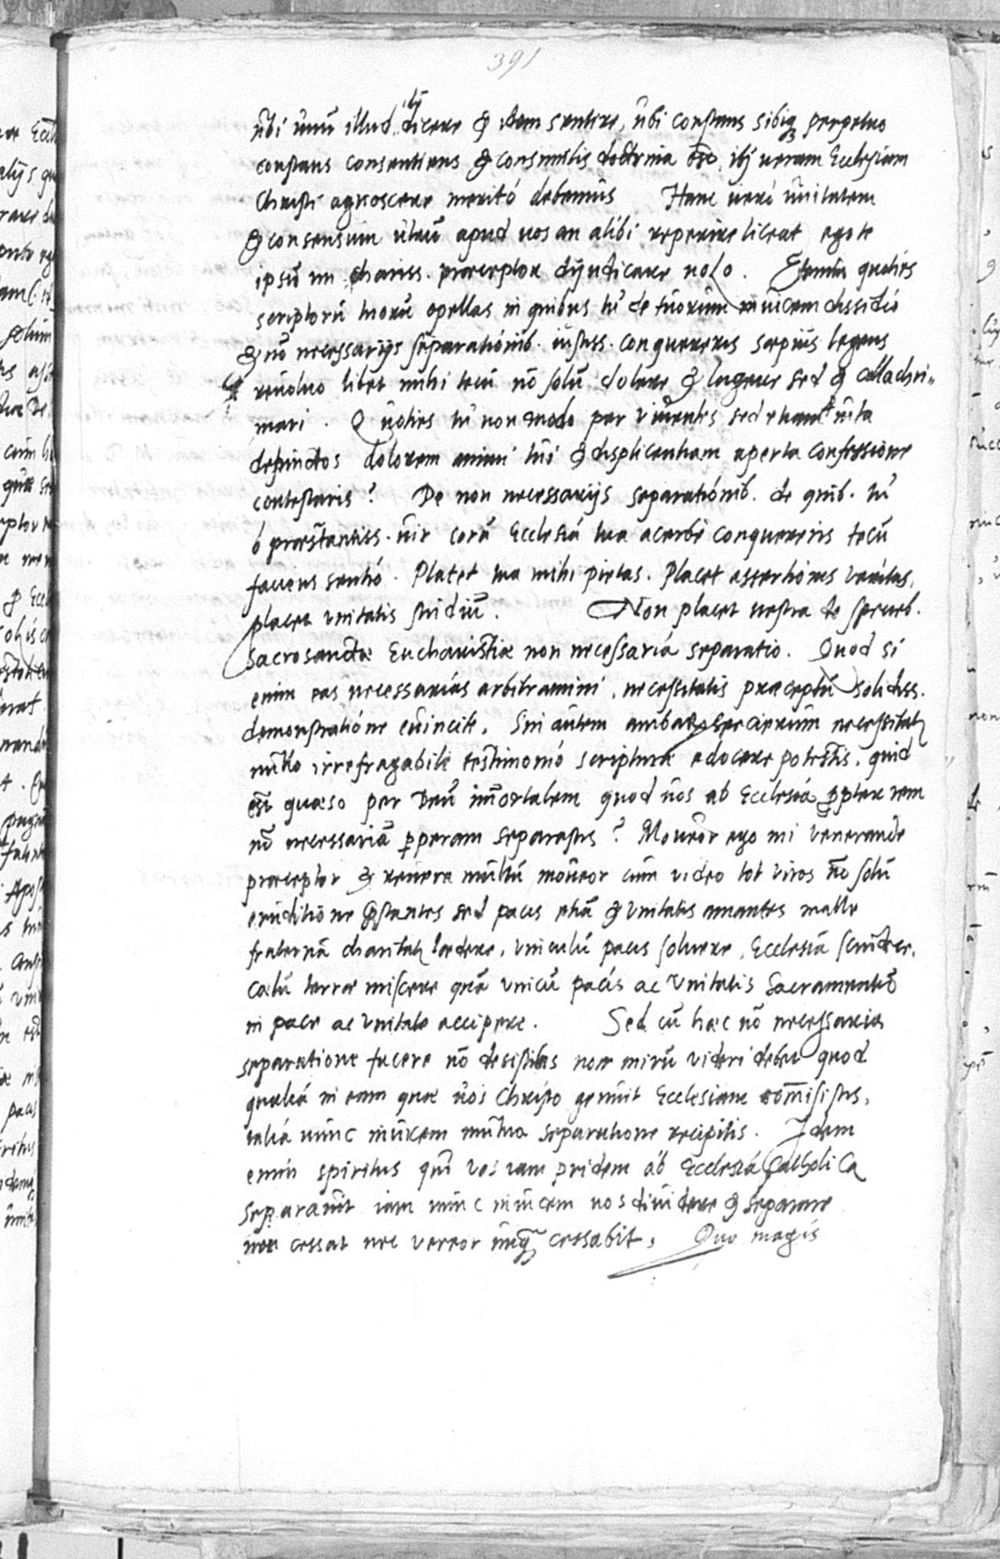 391
ubi unũ illud dicere & idem sentire, ubi constans sibiq perpetuo
constans consentiens & consimilis doctrina ibi veram Ecclesiam
Christi agnoscere meritò debemus Hanc veri unitatem
& consensum utrũ apud vos an alibi reperire liceat ego te
ipsũ mi chariss. praeceptor dijudicare volo. Etenim quoties
scriptorũ tuorũ opellas in quibus tu de tuorum invicem dissidio
& nõ necessarijs separationib. iustiss. conquereris saepius legens
revoluo libet mihi tecũ nõ solũ dolere & lugere sed & collachri-
mari. Quoties tu non modo per viventes sed etiam vita
defunctos dolorem animi tui & displicentiam aperta confessione
contestaris? De non necessarijs separationib. de quib. tu
ô praestantiss. vir corã Ecclesiâ tua acerbè conquereris tecũ
faciens sentio. Placet tua mihi pietas. Placet assertionis veritas.
placet unitatis studiũ. Non placet vestra de
sacrosanctae Eucharistiae non necessaria separatio. Quod si
enim eas necessarias arbitramini, necessitatis praeceptũ solidiss.
demonstratione evincite. Sin autem ambarum specierum necessitatẽ
nullo irrefragabili testimonio scripturae edocere potestis, quid
est quaeso per Deũ immortalem quod vos ab Ecclesiâ ppter rem
nõ necessariã pperam separastis? Moveor ego mi venerande
praeceptor & revera multũ moveor cum video tot viros nõ solũ
eruditione pstantes sed pacis etiã & unitatis amantes malle
fraternã charitatẽ laedere, vinculũ pacis solvere, Ecclesiã scindere,
coelũ terrae miscere quã unicũ pacis ac unitatis Sacramentũ
in pace ac unitate accipere. Sed cũ haec nõ necessaria
separatione facere nõ desistitis non mirũ videri debet quod
qualia in eam quae vos Christo genuit Ecclesiam commisistis,
talia nunc invicem mutua separatione recipitis. Idem
enim spiritus qui vos iam pridem ab Ecclesiâ Catholica
separavit iam nunc invicem vos dividere & separare
non cessat nec vereor unq cessabit, Quo magis